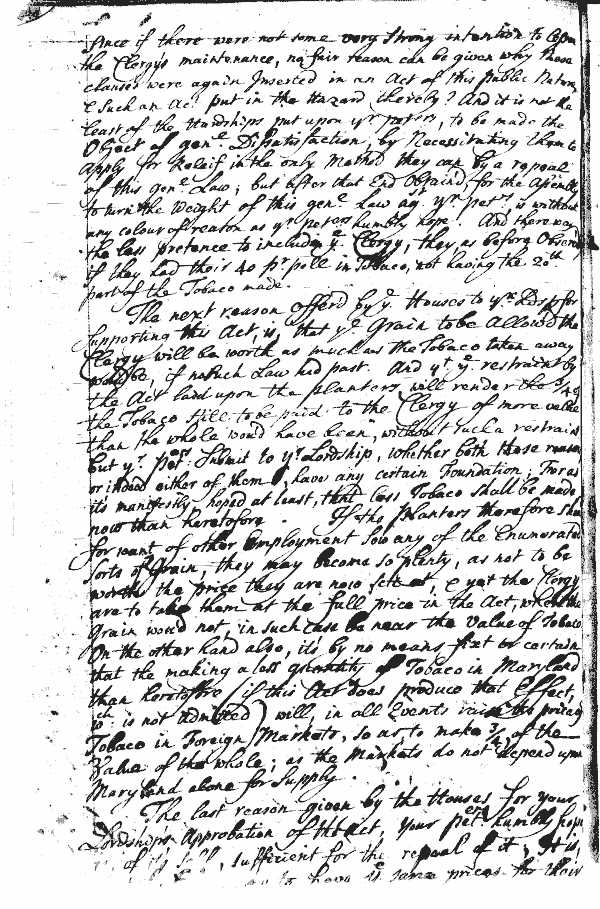 since if there were not some very strong intention to lessen
the Clergys maintenance, no fair reason can be given why those
clauses were again Inserted in an Act of this publick Nature
& Such an Act put in the Hazard thereby? And it is not the
least of the Hardships put upon yr petrs, to be made the
Object of genl Dissatisfaction, by Necessitating them to
apply for Releif in the only Method they can by a repeal
of this genl Law; but after that End Obtain'd, for the Assembly
to turn the Weight of this genl Law ag. yr petrs is without
any colour of reason as yr Peters humbly hope. And there was
the less pretence to include ye Clergy, they, as before Observ'd
if they had their 40 pr poll in Tobaco, not having the 20th
part of the Tobaco made.
The next reason offerd by ye Houses to yr Ldsp for
supporting this Act, is, that ye Grain to be Allowd the
Clergy will be worth as much as the Tobaco taken away
would be, if no Such Law had past. And yt ye restraint by
the Act laid upon the planters will render the 3/4 of
the Tobaco still to be paid to the Clergy of more value
than the whole would have been, without such a restraint
but yr Petrs Submit to yr Lordship, whether both those reasons
or indeed either of them, have any certain Foundation; For as
its manifestly hoped at least, that less Tobaco shall be made
now than heretofore. If the Planters therefore shd
for want of other Employment Sow any of the Enumerated
Sorts of Grain, they may become so plenty, as not to be
worth the price they are now sete at, & yet the Clergy
are to take them at the full price in the Act, when the
Grain woud not, in such case be near the value of Tobaco
On the other hand also, its by no means fixt or certain
that the making a less quantity of Tobaco in Maryland
than heretofre (if this Act does produce that Effect,
wch is not admitted) will, in all Events raise the price of
Tobaco in Foreign Markets, so as to make 3/4 of the
Value of the whole; as the Markets do not depend upon
Maryland alone for Supply.
The last reason given by the Houses for your
Lordships Approbation of the Act, your petrs humbly hope
sufficient for the repeal of it; It is,
to have ye same prices for their